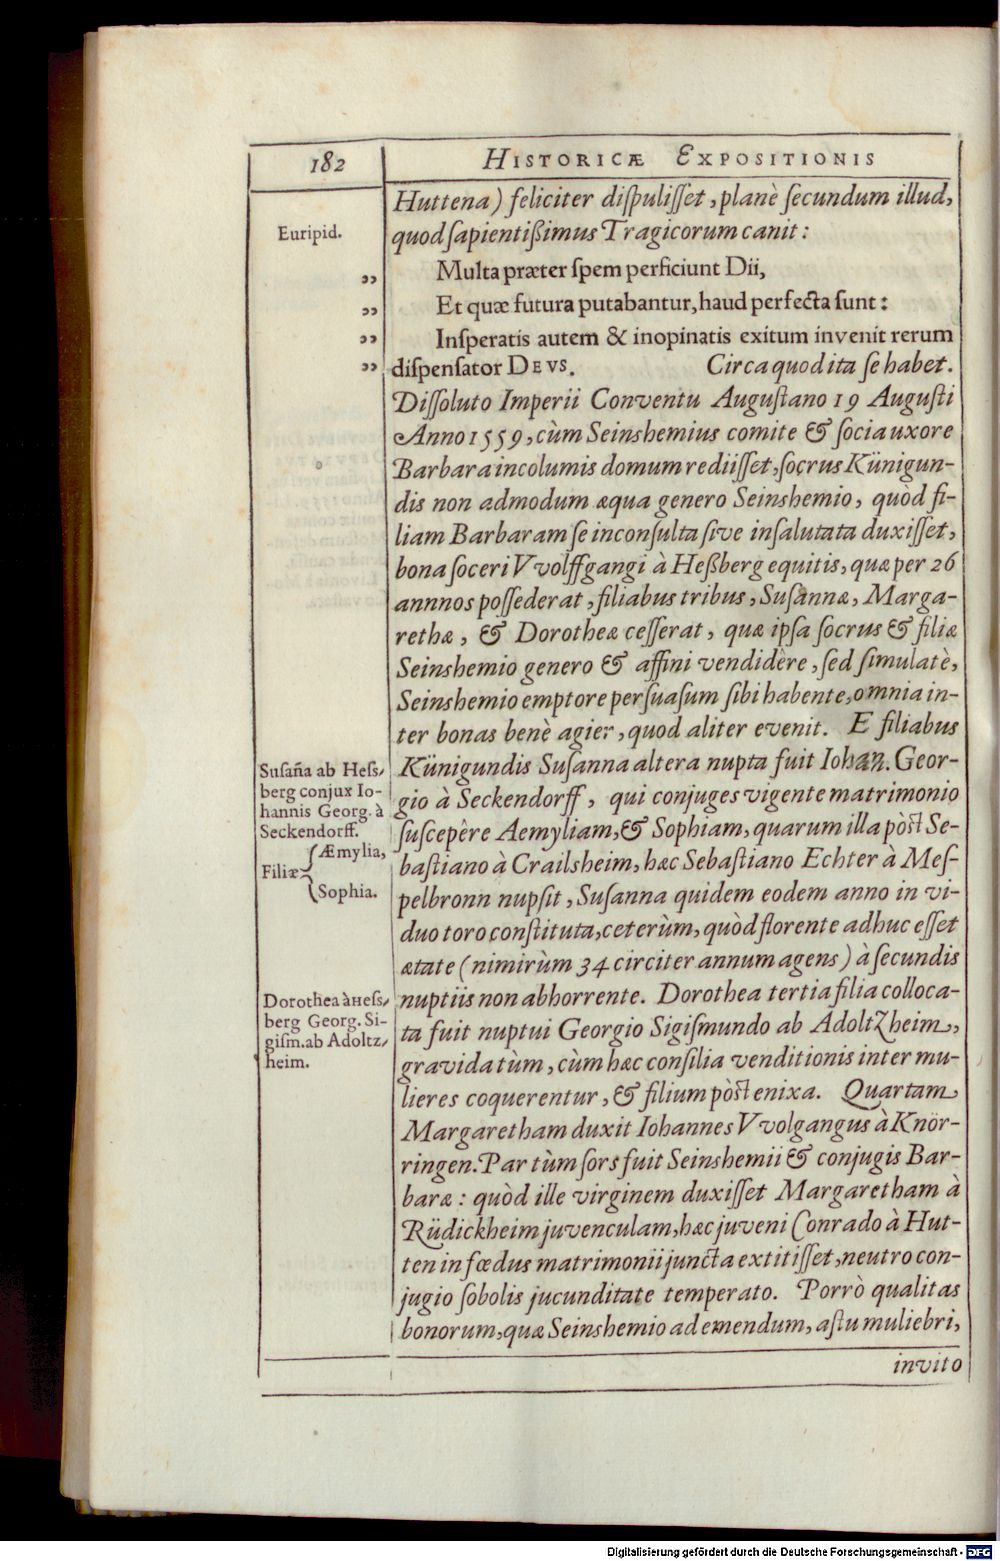 182
HISTORICÆ EXPOSITIONIS
Huttena) feliciter diſpuliſſet, planè ſecundum illud,
Euripid.
quod ſapientißimus Tragicorum canit:
„ Multa præter ſpem perficiunt Dii,
„ Et quæ futura putabantur, haud perfecta ſunt:
„ Inſperatis autem & inopinatis exitum invenit rerum
„ diſpenſator DEVS. Circa quod ita ſe habet.
Diſſoluto Imperii Conventu Auguſtano 19 Auguſti
Anno 1559, cùm Seinshemius comite & ſocia uxore
Barbara incolumis domum rediiſſet, ſocrus Künigun-
dis non admodum æqua genero Seinshemio, quòd fi-
liam Barbaram ſe inconſulta ſive inſalutata duxiſſet,
bona ſoceri VVolffgangi à Heßberg equitis, quæ per 26
annnos poſſederat, filiabus tribus, Suſannæ, Marga-
rethæ, & Dorotheæ ceſſerat, quæ ipſa ſocrus & filiæ
Seinshemio genero & affini vendidère, ſed ſimulatè,
Seinshemio emptore perſuaſum ſibi habente, omnia in-
ter bonas benè agier, quod aliter evenit. E filiabus
Künigundis Suſanna altera nupta fuit Iohan. Geor-
gio à Seckendorff, qui conjuges vigente matrimonio
ſuſcepêre Aemyliam, & Sophiam, quarum illa pòſt Se-
baſtiano à Crailsheim, hæc Sebaſtiano Echter à Meſ-
pelbronn nupſit, Suſanna quidem eodem anno in vi-
duo toro conſtituta, ceterùm, quòd florente adhuc eſſet
ætate (nimirùm 34 circiter annum agens) à ſecundis
nuptiis non abhorrente. Dorothea tertia filia colloca-
ta fuit nuptui Georgio Sigiſmundo ab Adoltzheim,
gravida tùm, cùm hæc conſilia venditionis inter mu-
lieres coquerentur, & filium pòſt enixa. Quartam
Margaretham duxit Iohannes VVolgangus à Knör-
ringen. Par tùm ſors fuit Seinshemii & conjugis Bar-
baræ: quòd ille virginem duxiſſet Margaretham à
Rüdickheim juvenculam, hæc juveni Conrado à Hut-
ten in fœdus matrimonii juncta extitiſſet, neutro con-
jugio ſobolis jucunditate temperato. Porrò qualitas
bonorum, quæ Seinshemio ad emendum, aſtu muliebri,
invito
Suſaña ab Heſs-
berg conjux Io-
hannis Georg. à
Seckendorff.
Æmylia,
Filiæ
Sophia.
Dorothea à Heſs-
berg Georg. Si-
giſm. ab Adoltz-
heim.
Digitalisierung gefördert durch die Deutsche Forschungsgemeinschaft - DFG